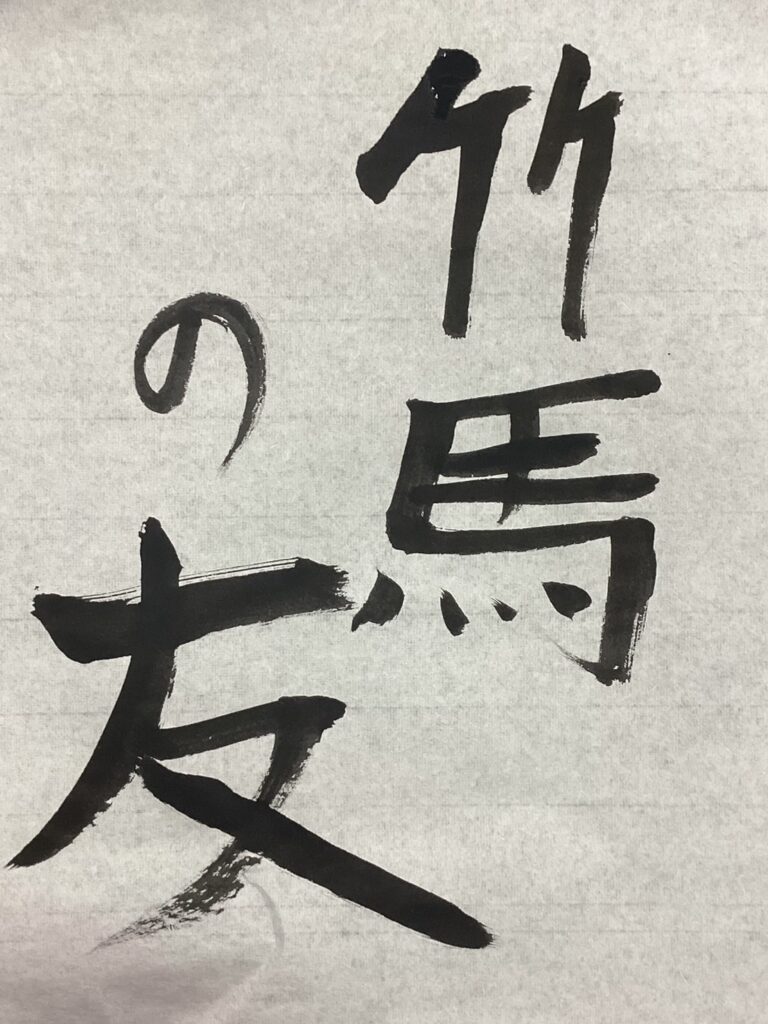 竹馬
の友